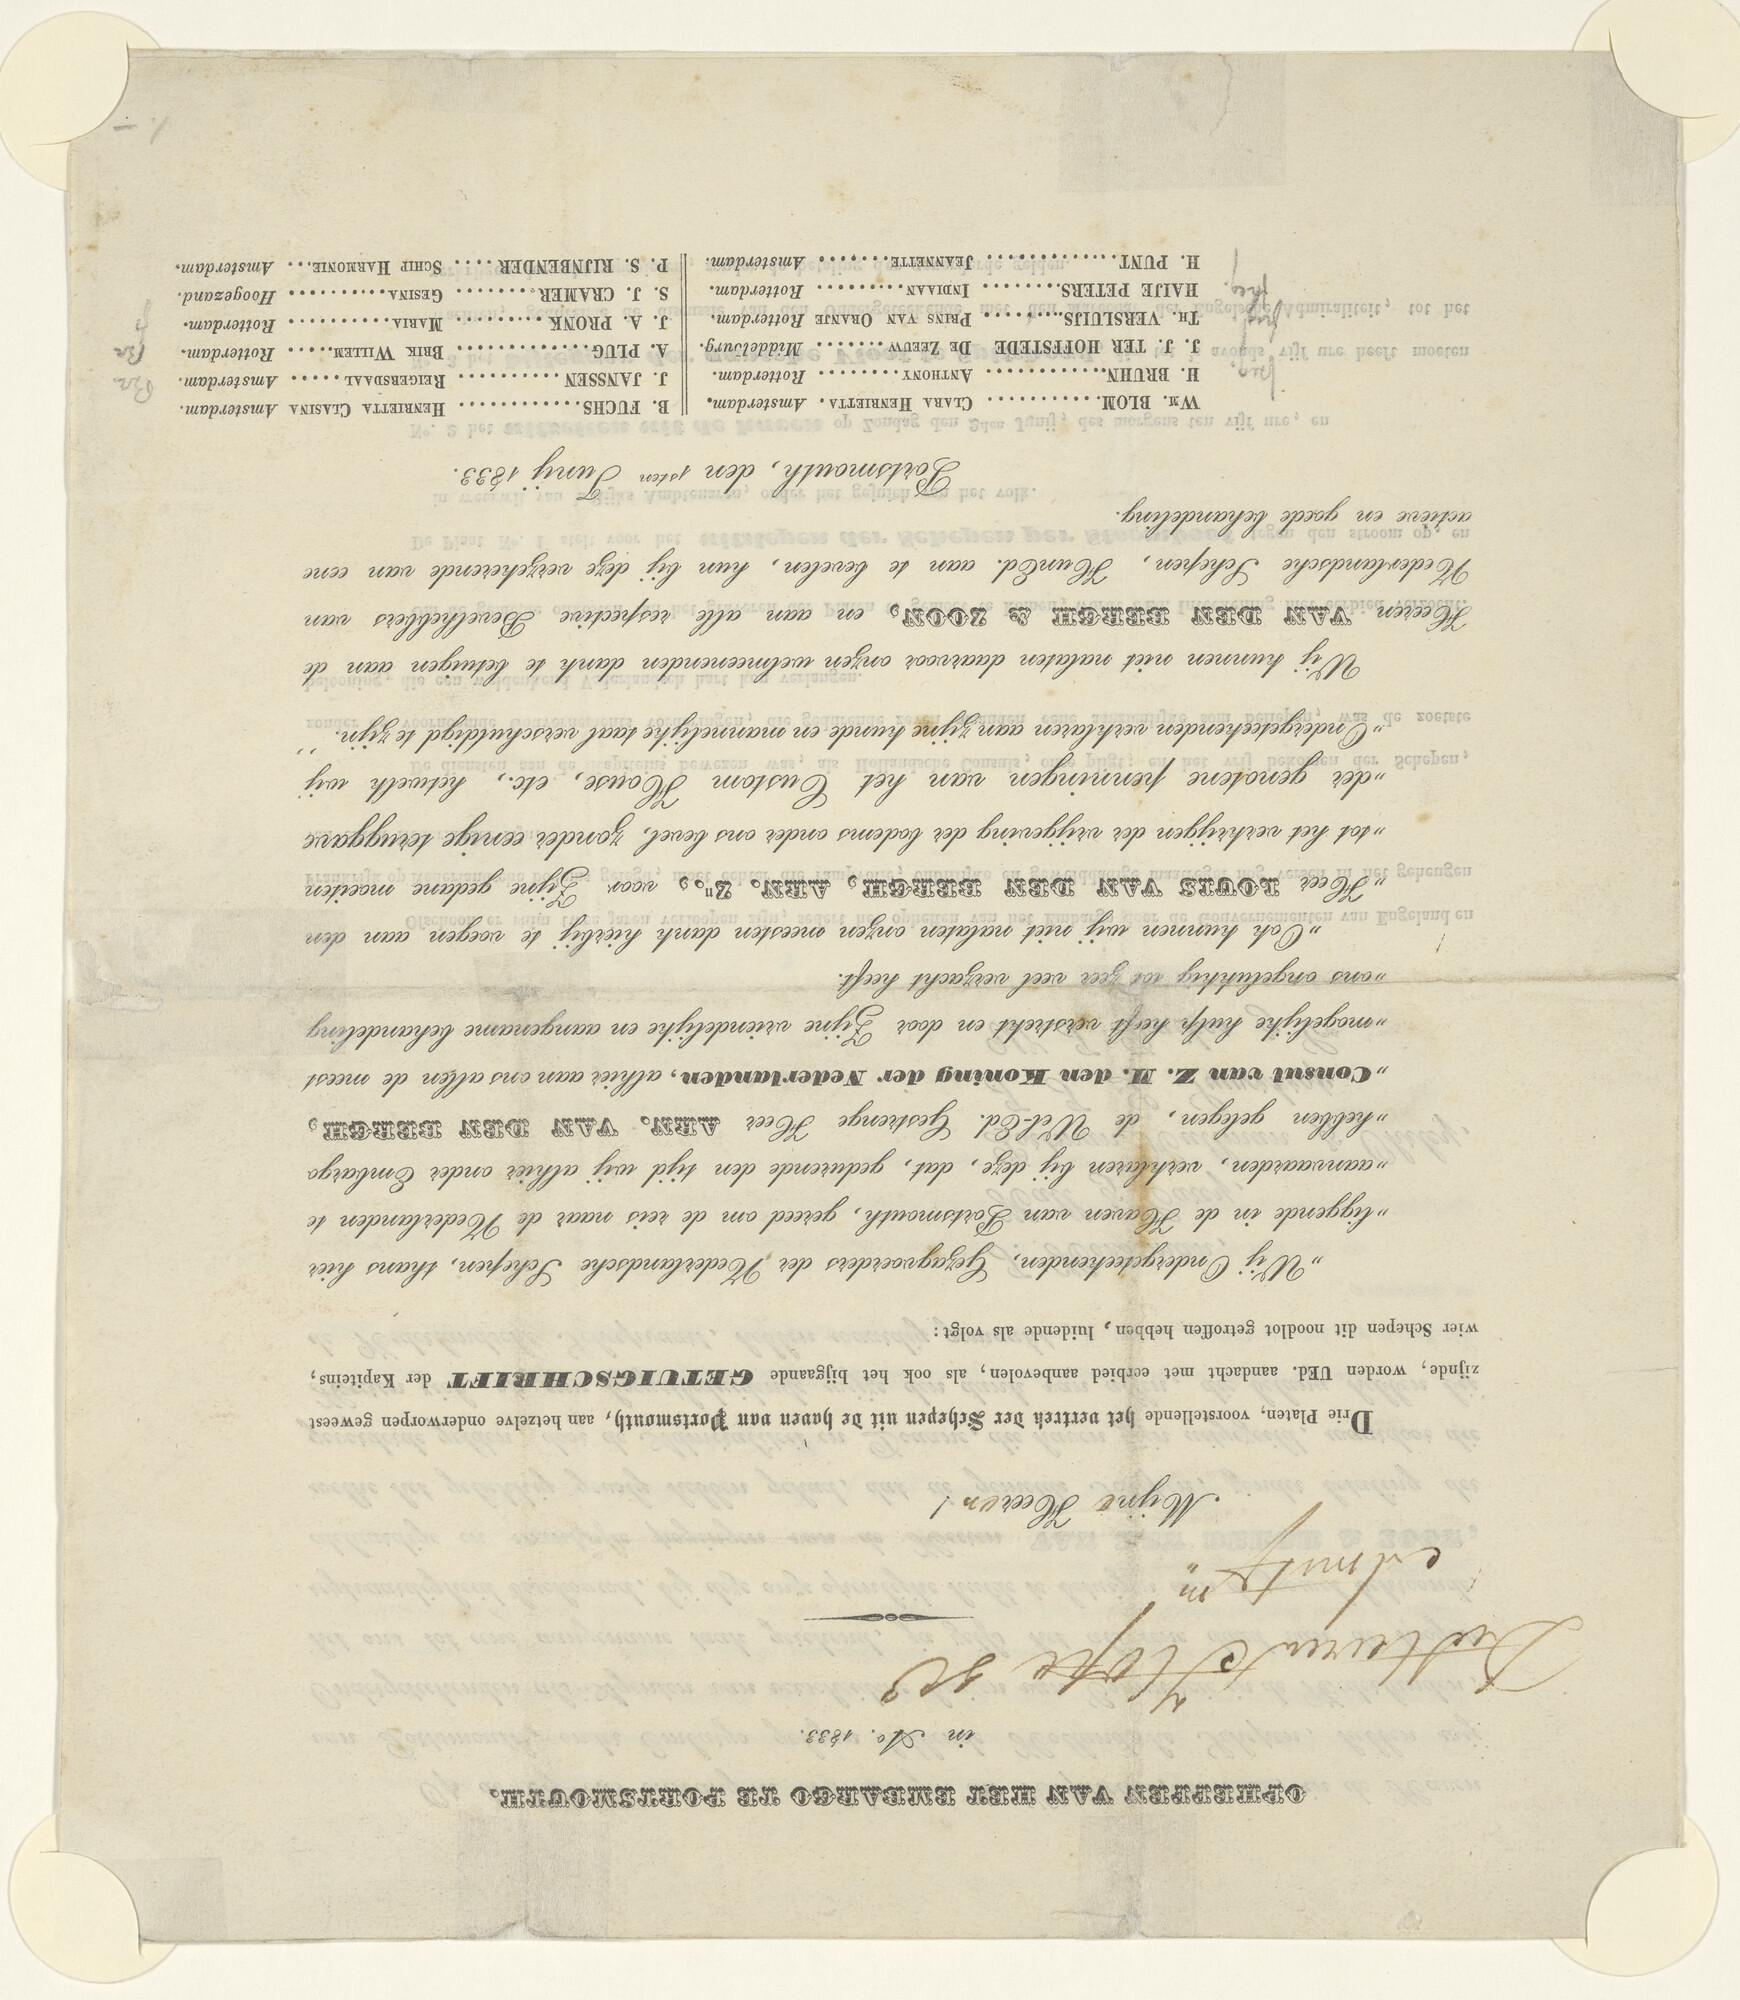 OPHEFFEN VAN HET EMBARGO TE PORTSMOUTH.
in Ao. 1833.
Mijne Heeren!
Drie Platen, voorstellende het vertrek der Schepen uit de haven van Portsmouth, aan hetzelve onderworpen geweest
zijnde, worden UEd. aandacht met eerbied aanbevolen, als ook het bijgaande GETUIGSCHRIFT der Kapiteins,
wier Schepen dit noodlot getroffen hebben, luidende als volgt:
„Wij Ondergeteekenden, Gezagvoerders der Nederlandsche Schepen, thans hier
„liggende in de Haven van Portsmouth, gereed om de reis naar de Nederlanden te
„aanvaarden, verklaren bij deze, dat, gedurende den tijd wij alhier onder Embargo
„hebben gelegen, de Wel-Ed. Gestrenge Heer ARN. VAN DEN BERGH,
„Consul van Z. M. den Koning der Nederlanden, alhier aan ons allen de meest
„mogelijke hulp heeft verstrekt en door Zijne vriendelijke en aangename behandeling
„ons ongelukkig lot zeer veel verzacht heeft.
„Ook kunnen wij niet nalaten onzen meesten dank hierbij te voegen aan den
„Heer LOUIS VAN DEN BERGH, ARN. Zn., voor Zijne gedane moeiten
„tot het verkrijgen der vrijgeving der bodems onder ons bevel, zonder eenige teruggave
„der genotene penningen van het Custom House, etc., hetwelk wij
„Ondergeteekenden verklaren aan zijne kunde en mannelijke taal verschuldigd te zijn.”
Wij kunnen niet nalaten daarvoor onzen welmeenenden dank te betuigen aan de
Heeren VAN DEN BERGH & ZOON, en aan alle respective Bevelhebbers van
Nederlandsche Schepen, HunEd. aan te bevelen, hun bij deze verzekerende van eene
actieve en goede behandeling.
Portsmouth, den 1sten Junij 1833.
WM. BLOM........... CLARA HENRIETTA. Amsterdam.
H. BRUHN............ ANTHONY........ Rotterdam.
J. J. TER HOFFSTEDE DE ZEEUW....... Middelburg.
TH. VERSLUIJS........ PRINS VAN ORANJE Rotterdam.
HAIJE PETERS........ INDIAAN......... Rotterdam.
H. PUNT............. JEANNETTE....... Amsterdam.
B. FUCHS............ HENRIETTA CLASINA Amsterdam.
J. JANSSEN.......... REIGERSDAAL..... Amsterdam.
A. PLUG............. BRIK WILLEM..... Rotterdam.
J. A. PRONK......... MARIA........... Rotterdam.
S. J. CRAMER........ GESINA.......... Hoogezand.
P. S. RIJNBENDER.... SCHIP HARMONIE... Amsterdam.